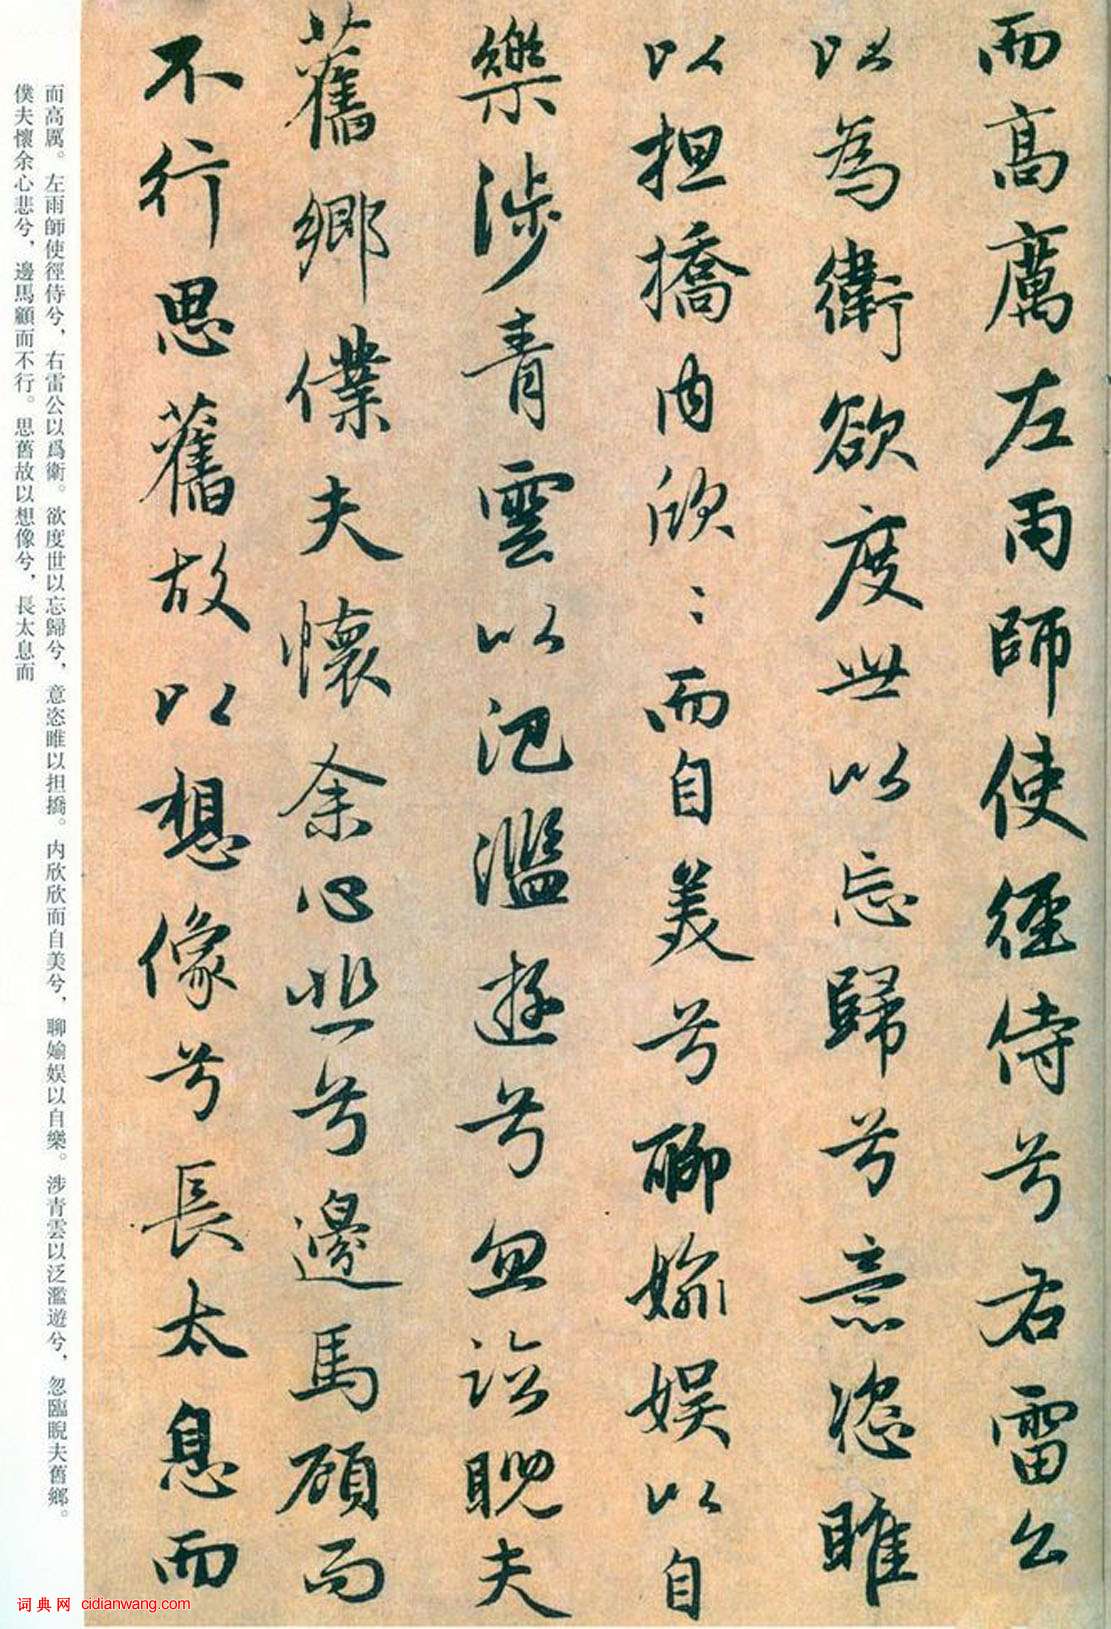 而高厲左雨師使徑侍兮右雷公
以為衛欲度世以忘歸兮意恣睢
以担撟内欣〻而自美兮聊媮娱以自
樂涉青雲以汜濫遊兮忽臨睨夫
舊鄉僕夫懷余心悲兮邊馬顧而
不行思舊故以想像兮長太息而
而高厲。左雨師使徑侍兮，右雷公以爲衛。欲度世以忘歸兮，意恣睢以担撟。内欣欣而自美兮，聊媮娱以自樂。涉青雲以泛濫遊兮，忽臨睨夫舊鄉。
僕夫懷余心悲兮，邊馬顧而不行。思舊故以想像兮，長太息而
词典网 cidianwang.com